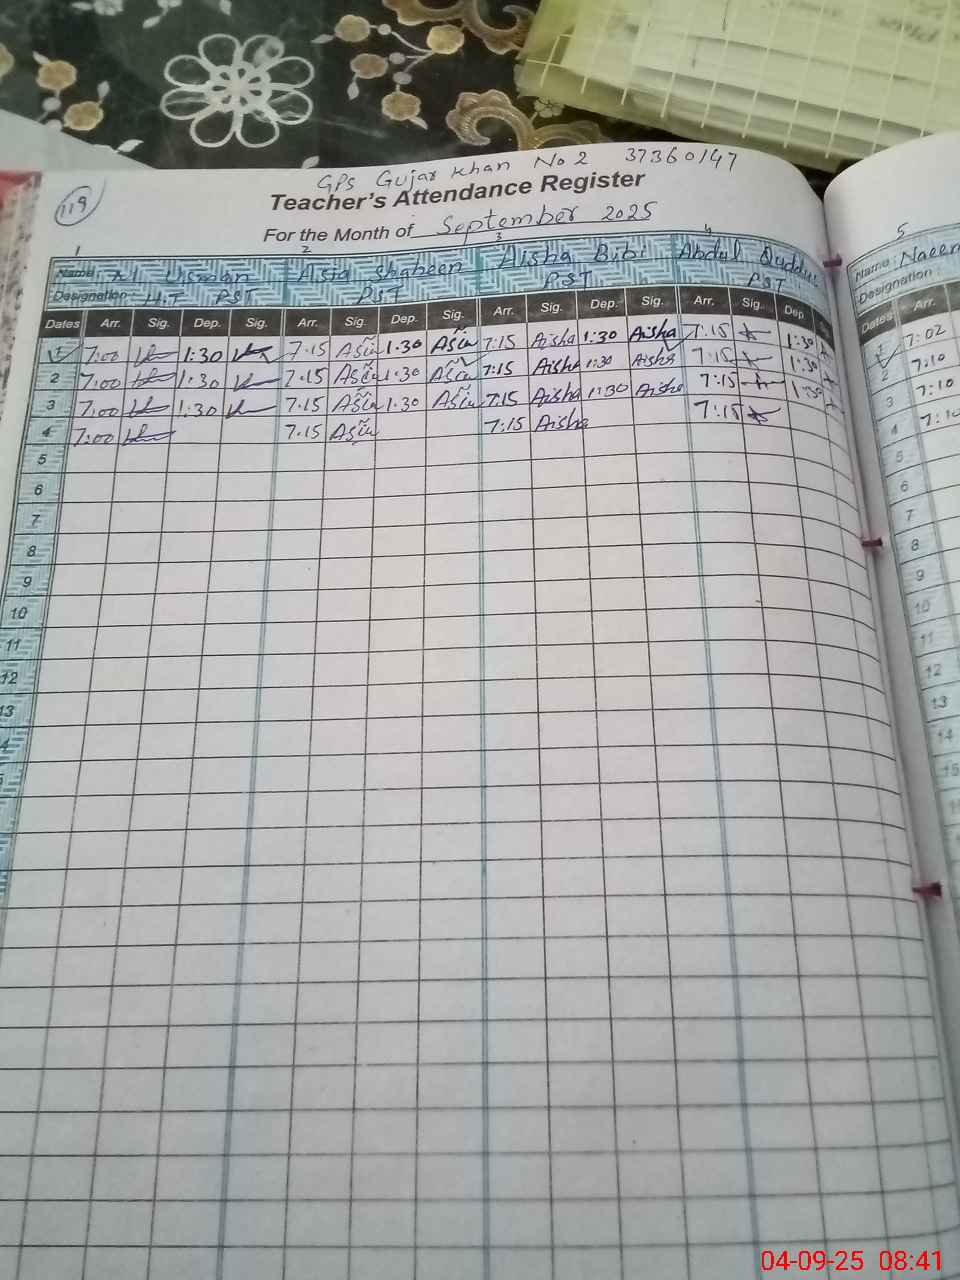 GPS Gujar Khan No 2 37360147
119
Teacher's Attendance Register
For the Month of September 2025
1 2 3 4 5
Name: M Usman Asia Shaheen Aisha Bibi Abdul Quddus Name: Naeem
Designation: H.T PST PST PST PST Designation:
Dates Arr. Sig. Dep. Sig. Arr. Sig. Dep. Sig. Arr. Sig. Dep. Sig. Arr. Sig. Dep. Dates Arr.
1 7:00 1:30 7.15 Asia 1.30 Asia 7:15 Aisha 1:30 Aisha 7:15 1:30 7:02
2 7:00 1:30 7.15 Asia 1:30 Asia 7:15 Aisha 1:30 Aisha 7:15 1:30 2 7:10
3 7:00 1:30 7.15 Asia 1:30 Asia 7:15 Aisha 1:30 Aisha 7:15 1:30 3 7:10
4 7:00 7.15 Asia 7:15 Aisha 7:15 4
5 5
6 6
7 7
8 8
9 9
10 10
11 11
12 12
13 13
4 14
15
04-09-25 08:41